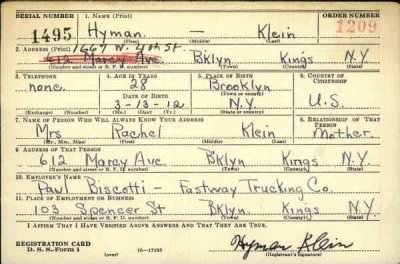 SERIAL NUMBER 1. NAME (Print) ORDER NUMBER
1495 Hyman. — Klein 1209
(First) (Middle) (Last)
2. ADDRESS (Print) 1667 W. 4th St
612 Marcy Ave. B'klyn Kings N.Y.
(Number and street or R. F. D. number) (Town) (County) (State)
3. TELEPHONE 4. AGE IN YEARS 5. PLACE OF BIRTH 6. COUNTRY OF CITIZENSHIP
none. 28 Brooklyn
DATE OF BIRTH (Town or county)
3-13-12 N.Y. U.S.
(Exchange) (Number) (Mo.) (Day) (Yr.) (State or country)
7. NAME OF PERSON WHO WILL ALWAYS KNOW YOUR ADDRESS 8. RELATIONSHIP OF THAT PERSON
Mrs Rachel Klein Mother.
(Mr., Mrs., Miss) (First) (Middle) (Last)
9. ADDRESS OF THAT PERSON
612 Marcy Ave. B'klyn Kings N.Y.
(Number and street or R. F. D. number) (Town) (County) (State)
10. EMPLOYER'S NAME
Paul Biscotti — Fastway Trucking Co.
11. PLACE OF EMPLOYMENT OR BUSINESS
103 Spencer St B'klyn Kings N.Y.
(Number and street or R. F. D. number) (Town) (County) (State)
I AFFIRM THAT I HAVE VERIFIED ABOVE ANSWERS AND THAT THEY ARE TRUE.
REGISTRATION CARD
D. S. S. Form 1 (over) 16—17105 Hyman Klein
(Registrant's signature)